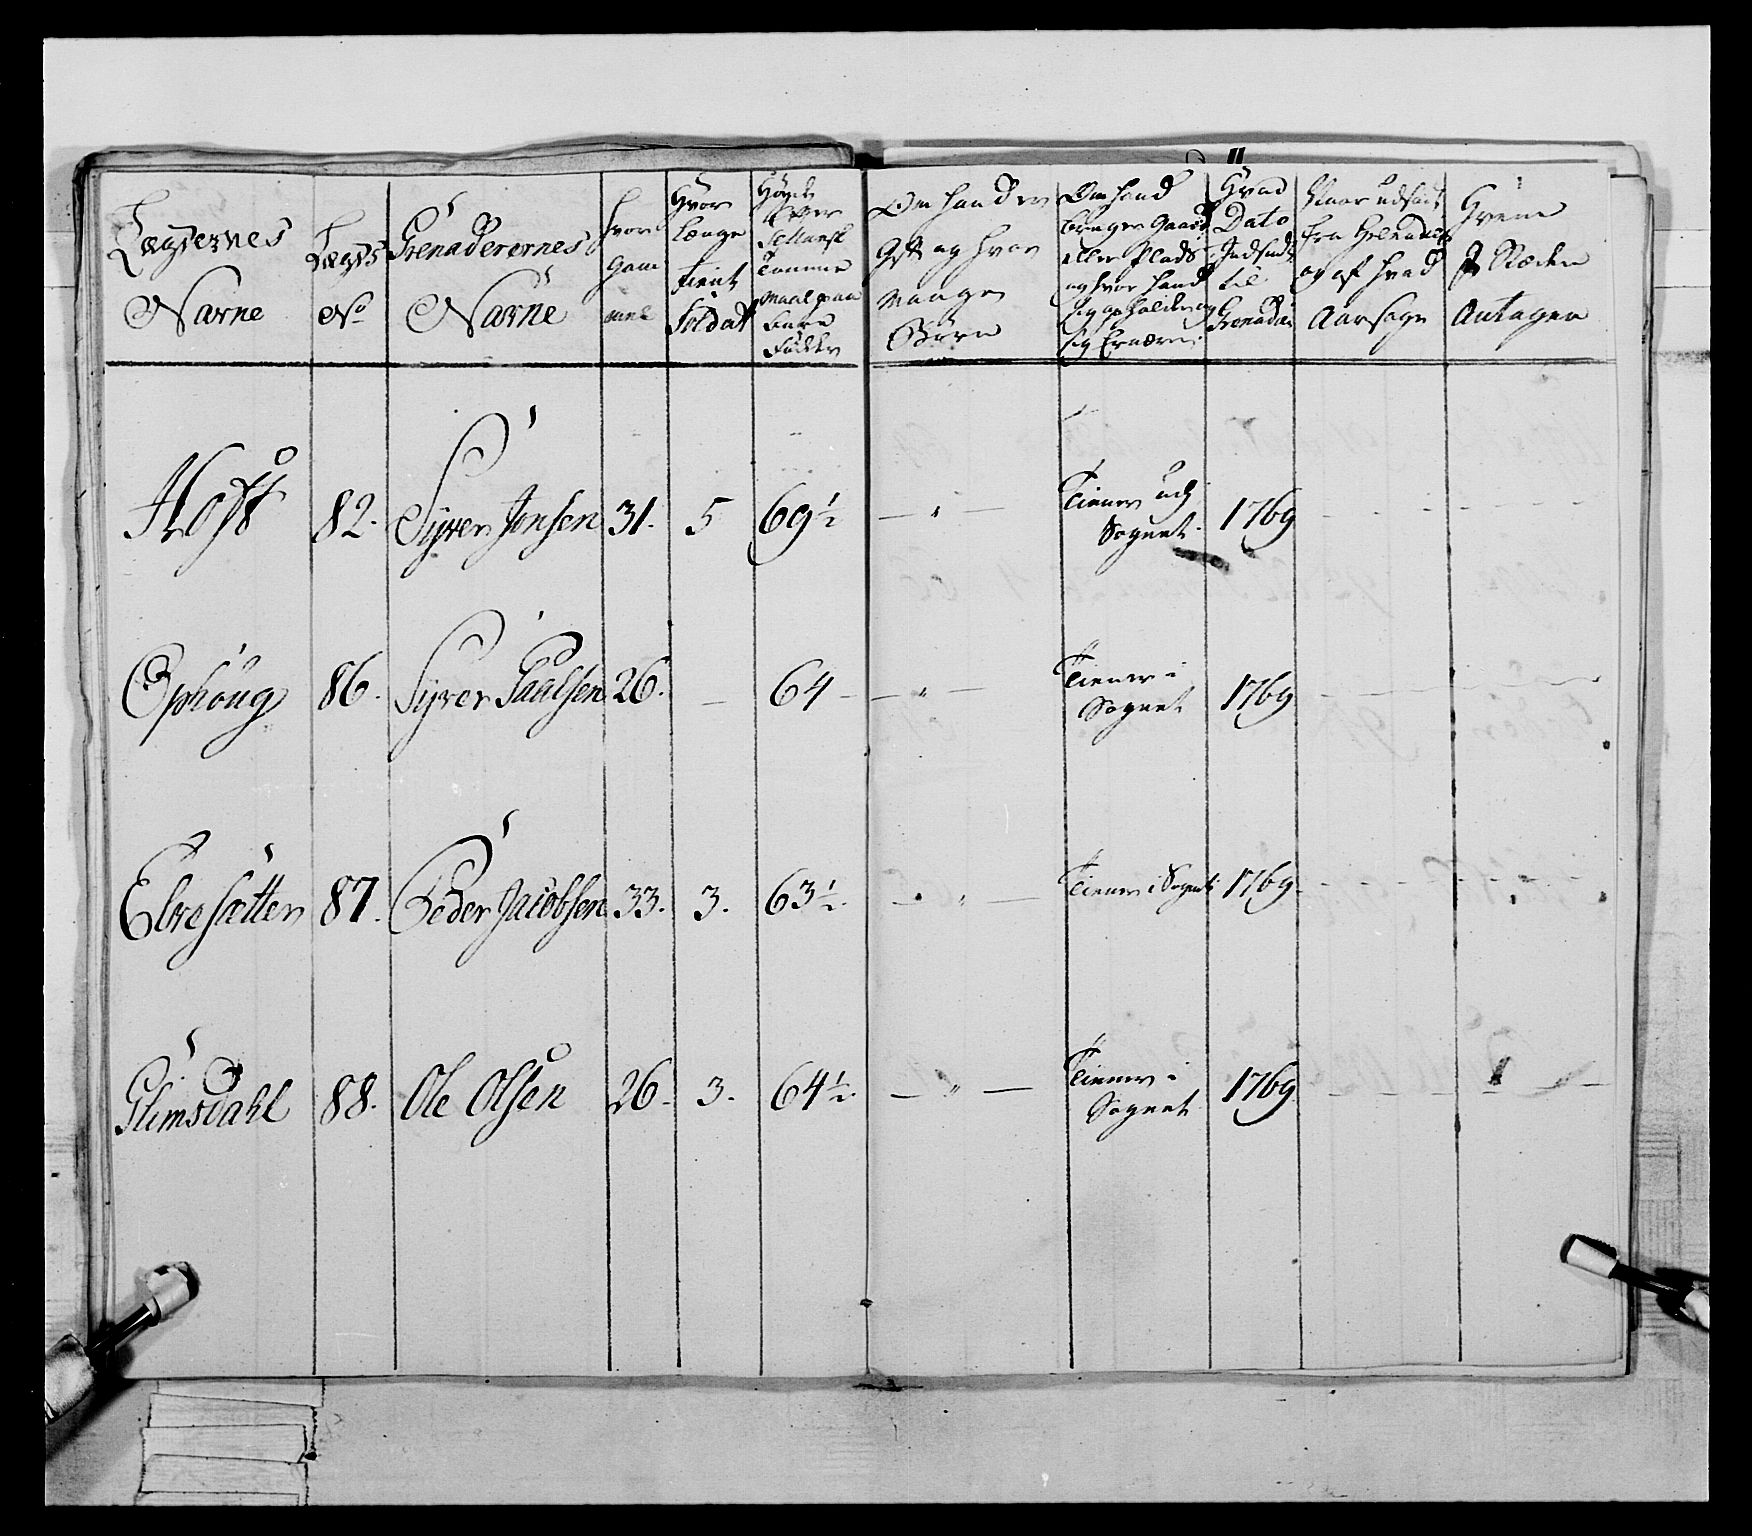 Lægdernes Navne
Lægds No
Grenaderernes Navne
hvor Gam mel
Hvor længe tient Soldat
Høyde Efter Tomme Maal paa bare Fødder
Om hand er Gift og hvor mange Børn
Om hand bruger Gaard eller Plads og hvor hand sig opholder og sig Ernærer
Hvad Dato Indsadt til Grenader
Naar udsadt fra og af hvad Aarsage
Hvem I Stæden Antagen
Hoft 82. Syver Jonsen 31. 5 69½ — " — Tiener udj Sognet. 1769
Ophoug 86. Syver Paalsen 26. — 64 — — " — Tiener i Sognet 1769
Elvesætter 87. Peder Jacobsen 33. 3. 63½. — " — Tiener i Sognet 1769.
Glimsdahl 88. Ole Olsen 26. 3. 64½. — " — Tiener i Sognet 1769